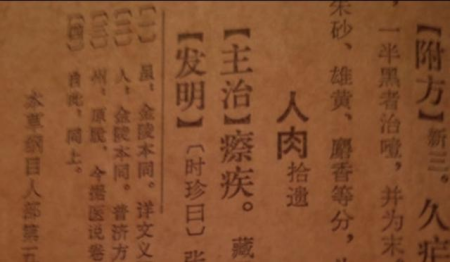 【附方】新三。久疟
一半黑者治噎，并为末
朱砂、雄黄、麝香等分，
人肉拾遗
【主治】瘵疾。藏
【发明】〔时珍曰〕张
虽，金陵本同。详文义
人，金陵本同。普济方
州，原脱，今据医说卷
首此，同上。
本草纲目人部第